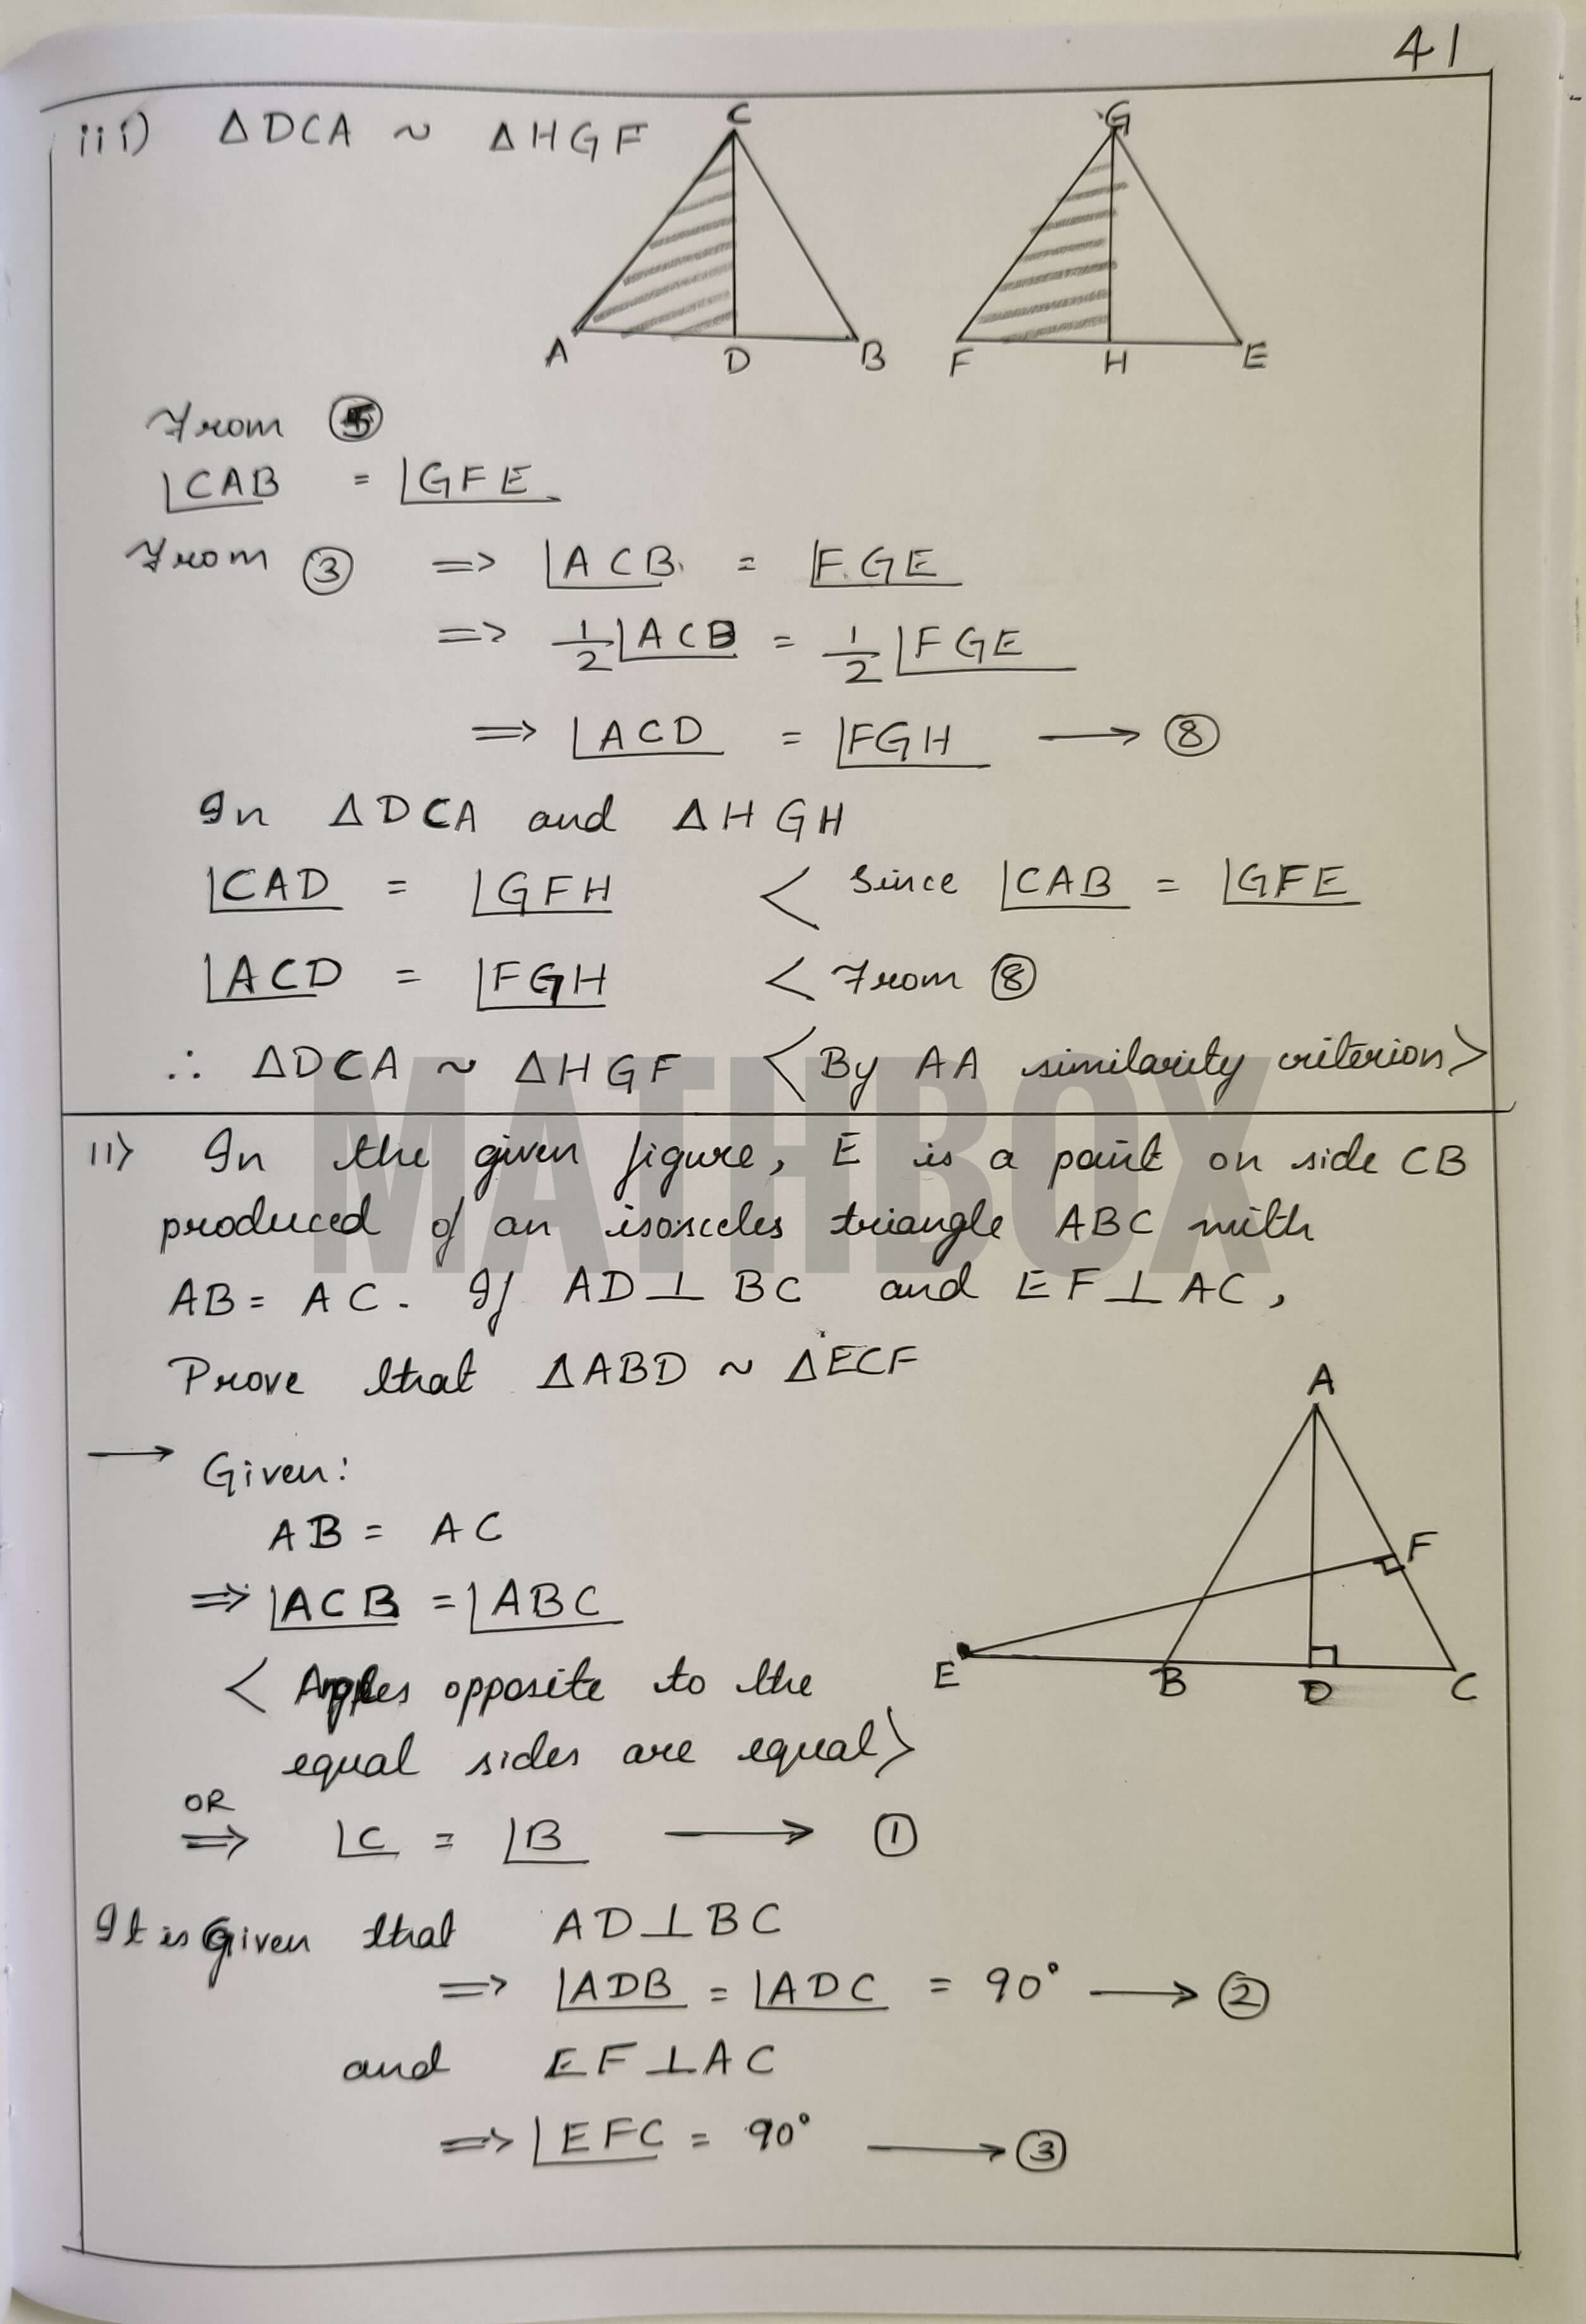 41
iii) ΔDCA ~ ΔHGF
C
G
A D B
F H E
From ⑤
∠CAB = ∠GFE
From ③ => ∠ACB = ∠FGE
=> 1/2 ∠ACB = 1/2 ∠FGE
=> ∠ACD = ∠FGH ⟶ ⑧
In ΔDCA and ΔHGH
∠CAD = ∠GFH < Since ∠CAB = ∠GFE
∠ACD = ∠FGH < From ⑧
∴ ΔDCA ~ ΔHGF <By AA similarity criterion>
MATHBOX
11> In the given figure, E is a point on side CB
produced of an isosceles triangle ABC with
AB = AC. If AD⊥BC and EF⊥AC,
Prove that ΔABD ~ ΔECF
A
F
E B D C
⟶ Given:
AB = AC
=> ∠ACB = ∠ABC
< Angles opposite to the
equal sides are equal>
OR
=> ∠C = ∠B ⟶ ①
It is Given that AD⊥BC
=> ∠ADB = ∠ADC = 90° ⟶ ②
and EF⊥AC
=> ∠EFC = 90° ⟶ ③